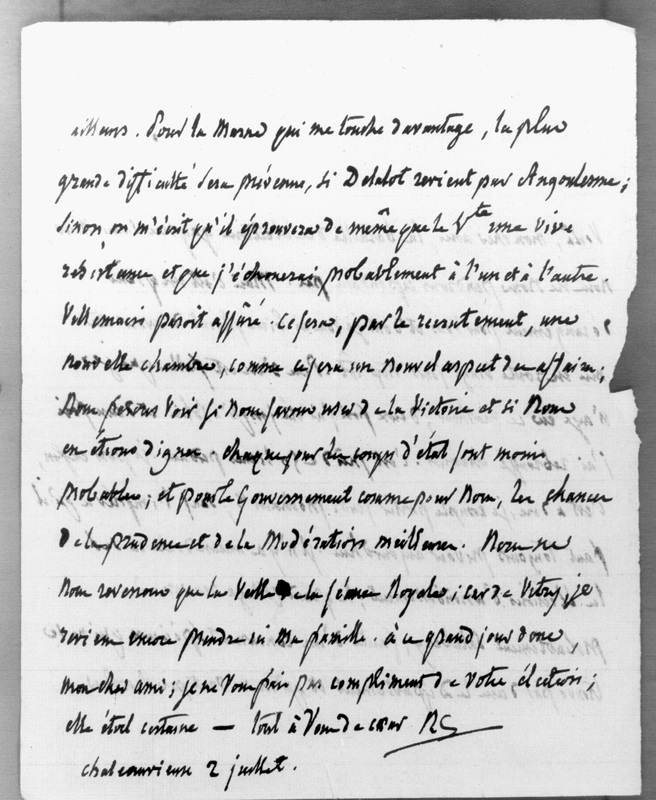 ailleurs. Pour la Marne qui me touche davantage, la plus
grande difficulté sera prévenue, si Delalot revient par Angoulesme;
sinon, on m'écrit qu'il éprouvera de même que le Vte une vive
résistance et que j'échouerai probablement à l'un et à l'autre.
Villemain paroit assuré. Ce sera, par le recrutement, une
nouvelle chambre, comme ce sera un nouvel aspect des affaires;
Nous pourrons voir si nous savons user de la Victoire et si nous
en étions dignes. chaque jour les coups d'état sont moins
probables; et pour le Gouvernement comme pour nous, les chances
de la prudence et de la Modération meilleures. Nous ne
nous reverrons que la veille de la séance Royale; car de Vitry, je
reviens encore prendre ici ma famille. à ce grand jour donc,
mon cher ami; je ne vous fais pas compliment de votre élection;
elle étoit certaine — tout à Vous de cœur RC
chateauvieux 2 juillet.